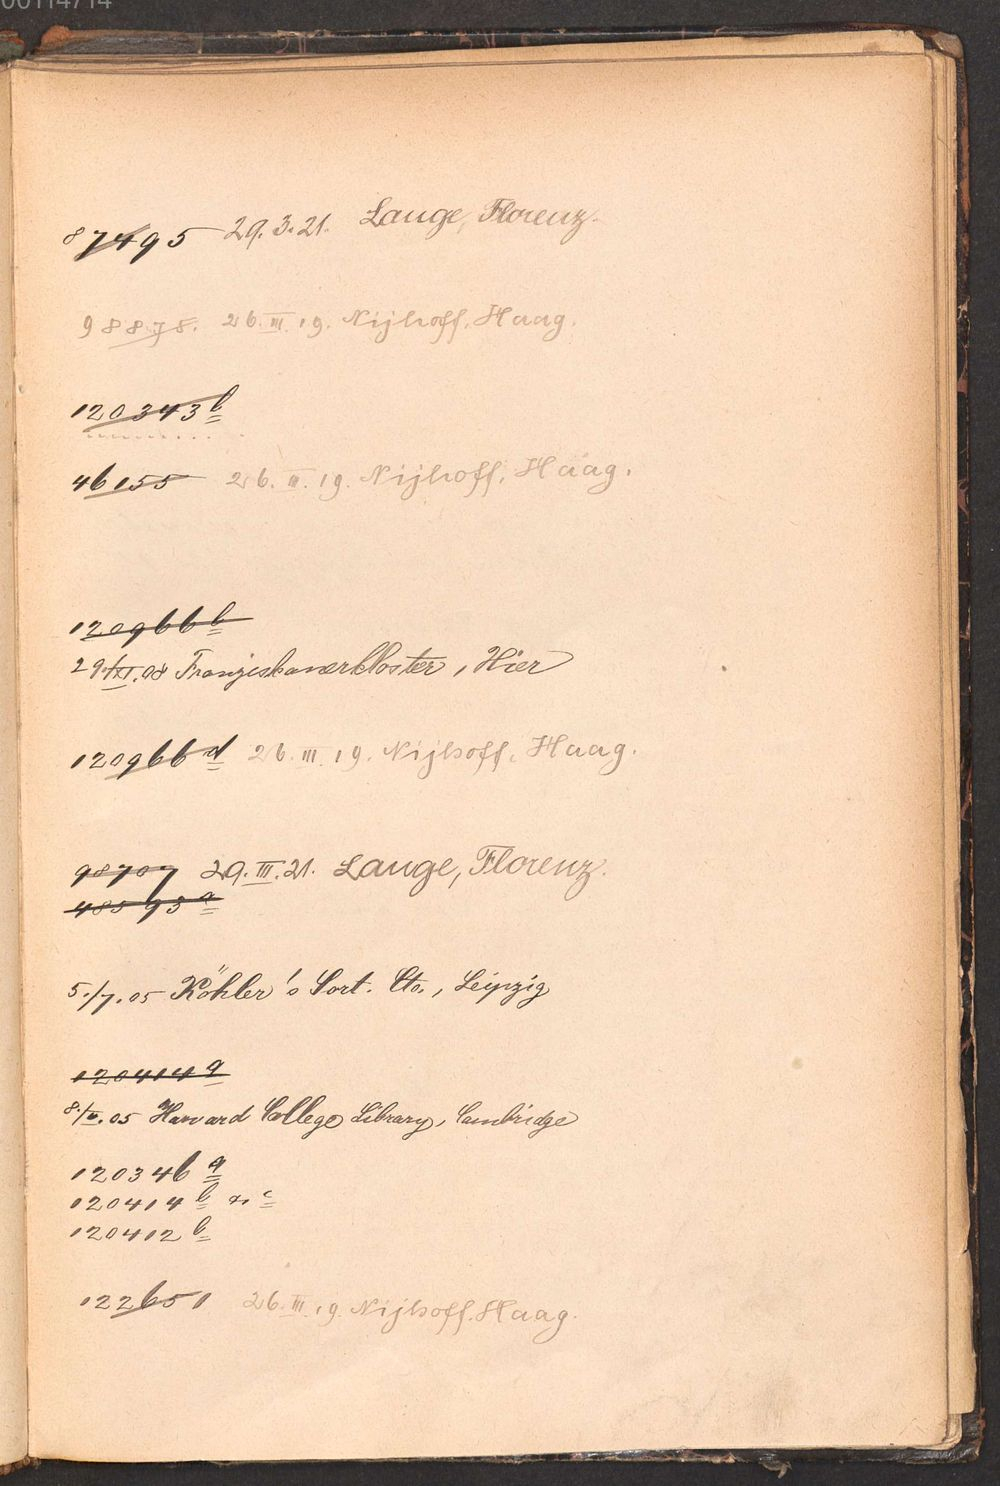 00114714
87495 29.3.21. Lange, Florenz.
98878. 26.III.19. Nijhoff, Haag.
120343 b
46155 26.III.19. Nijhoff, Haag.
120966 b
29/XI.08 Franziskanerkloster, Hier
120966 d 26.III.19. Nijhoff, Haag.
98707 29.III.21. Lange, Florenz.
48593 a
5./7.05 Köhler's Sort. Cto., Leipzig
120414 a
8./V.05 Harvard College Library, Cambridge
120346 a
120414 b & c
120412 b
122651 26.III.19. Nijhoff, Haag.